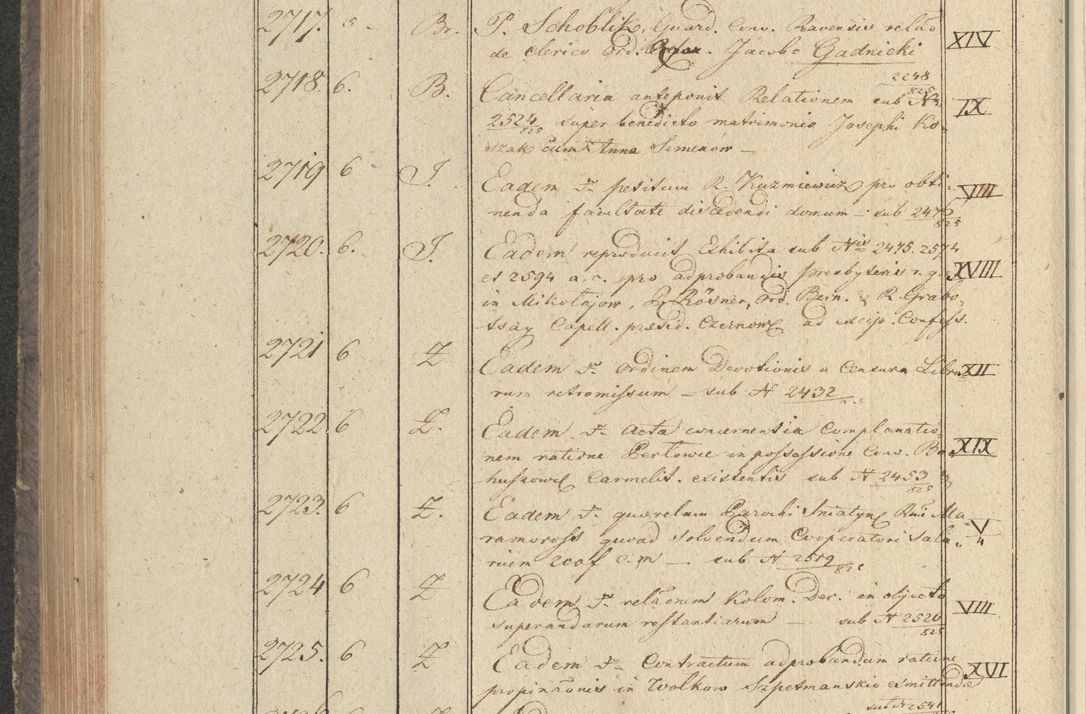 2717. 5 Br. P. Schoblik, Guard. Conv. Ravensis relão XIV
de clerico Ord. Jacobo Gadnicki
2718. 6. B. Cancellaria anteponit Relationem sub N 2248/825 IX
2524/825 super benedicto matrimonio Josephi Ko-
szak cum Anna Semenow —
2719 6 J. Eadem petitum R. Kuzmiewicz pro obti- VIII
nenda facultate discedendi domum — sub 2476/825
2720. 6. J. Eadem reproducit Exhibita sub Nis 2475. 2574
et 2594 a. c. pro adprobandis presbyteris r. g. XVIII
in Mikołajow, Rösner, Ord. Bern. & R. Grabo-
Capell. præsid. Czernow ad excip. Confess.
2721 6 Z Eadem ordinem Devotionis a Censura Libro- XII
rum retromissum — sub N 2432
2722. 6 Z. Eadem Acta concernentia Complanatio-
nem ratione Perłowce in possessione Conv. Bo- XIX
huszow Carmelit. existentis sub N 2453/825
2723. 6 Z. Eadem quærelam Parochi Sniatyn Rmi Ma- V/4
ramoross quoad solvendum Cooperatori Sala-
rium sub N 2519/825
2724 6 Z Eadem relãonem Kolom. Dec. in objecto VIII
superandarum restantiarum — sub N 2520/825
2725. 6 Z Eadem Contractum adprobandum ratione XVI
propinãonis in Wolkow Szpetmanskie emittendæ
sub N 2541